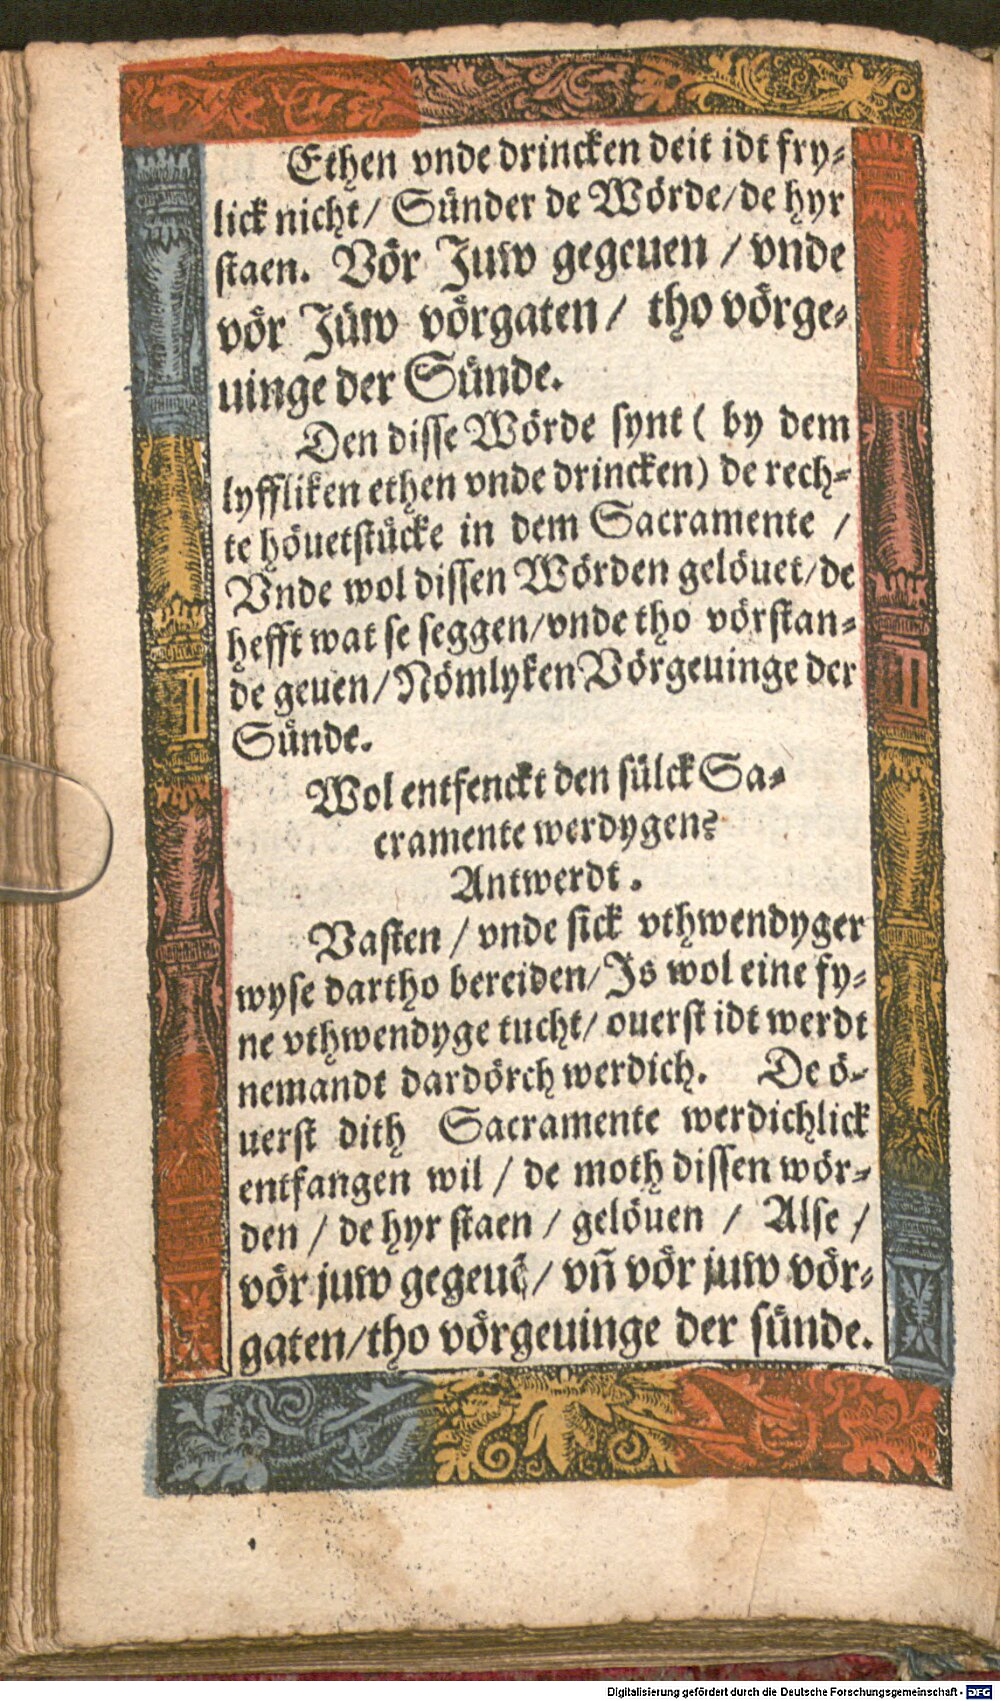 Ethen vnde drincken deit idt fry⸗
lick nicht/ Sünder de Wörde/de hyr
staen. Vör Juw gegeuen / vnde
vör Jüw vörgaten/ tho vörge⸗
uinge der Sünde.
Den disse Wörde synt ( by dem
lyffliken ethen vnde drincken) de rech⸗
te höuetstücke in dem Sacramente /
Vnde wol dissen Wörden gelöuet/de
hefft wat se seggen/vnde tho vörstan⸗
de geuen/Nömlyken Vörgeuinge der
Sünde.
Wol entfenckt den sülck Sa⸗
cramente werdygen?
Antwerdt.
Vasten / vnde sick vthwendyger
wyse dartho bereiden/Js wol eine fy⸗
ne vthwendyge tucht/ ouerst idt werdt
nemandt dardörch werdich. De ö⸗
uerst dith Sacramente werdichlick
entfangen wil / de moth dissen wör⸗
den / de hyr staen / gelöuen / Alse /
vör juw gegeuē/ vñ vör juw vör⸗
gaten/tho vörgeuinge der sünde.
Digitalisierung gefördert durch die Deutsche Forschungsgemeinschaft - DFG